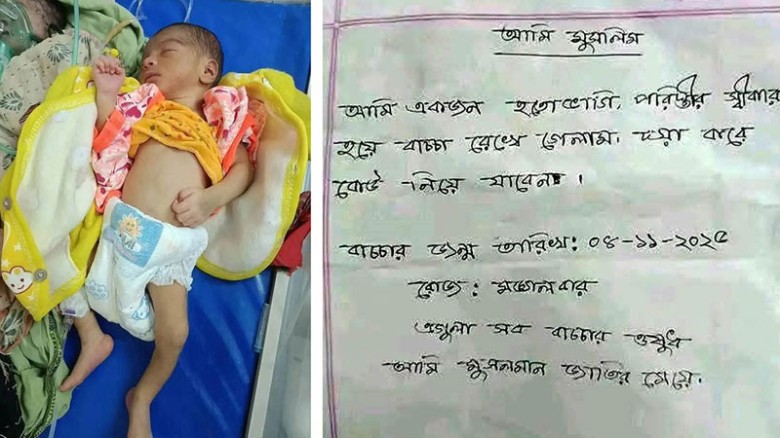 আমি মুসলিম
আমি একজন হতোভাগি, পরিস্তীর স্বীকার
হয়ে বাচ্চা রেখে গেলাম, দয়া করে
কেউ নিয়ে যাবেন।
বাচ্চার জন্ম তারিখ: ০৪-১১-২০২৫
রোজ: মঙ্গলবার
এগুলা সব বাচ্চার ওষুধ
আমি মুসলমান জাতির মেয়ে.